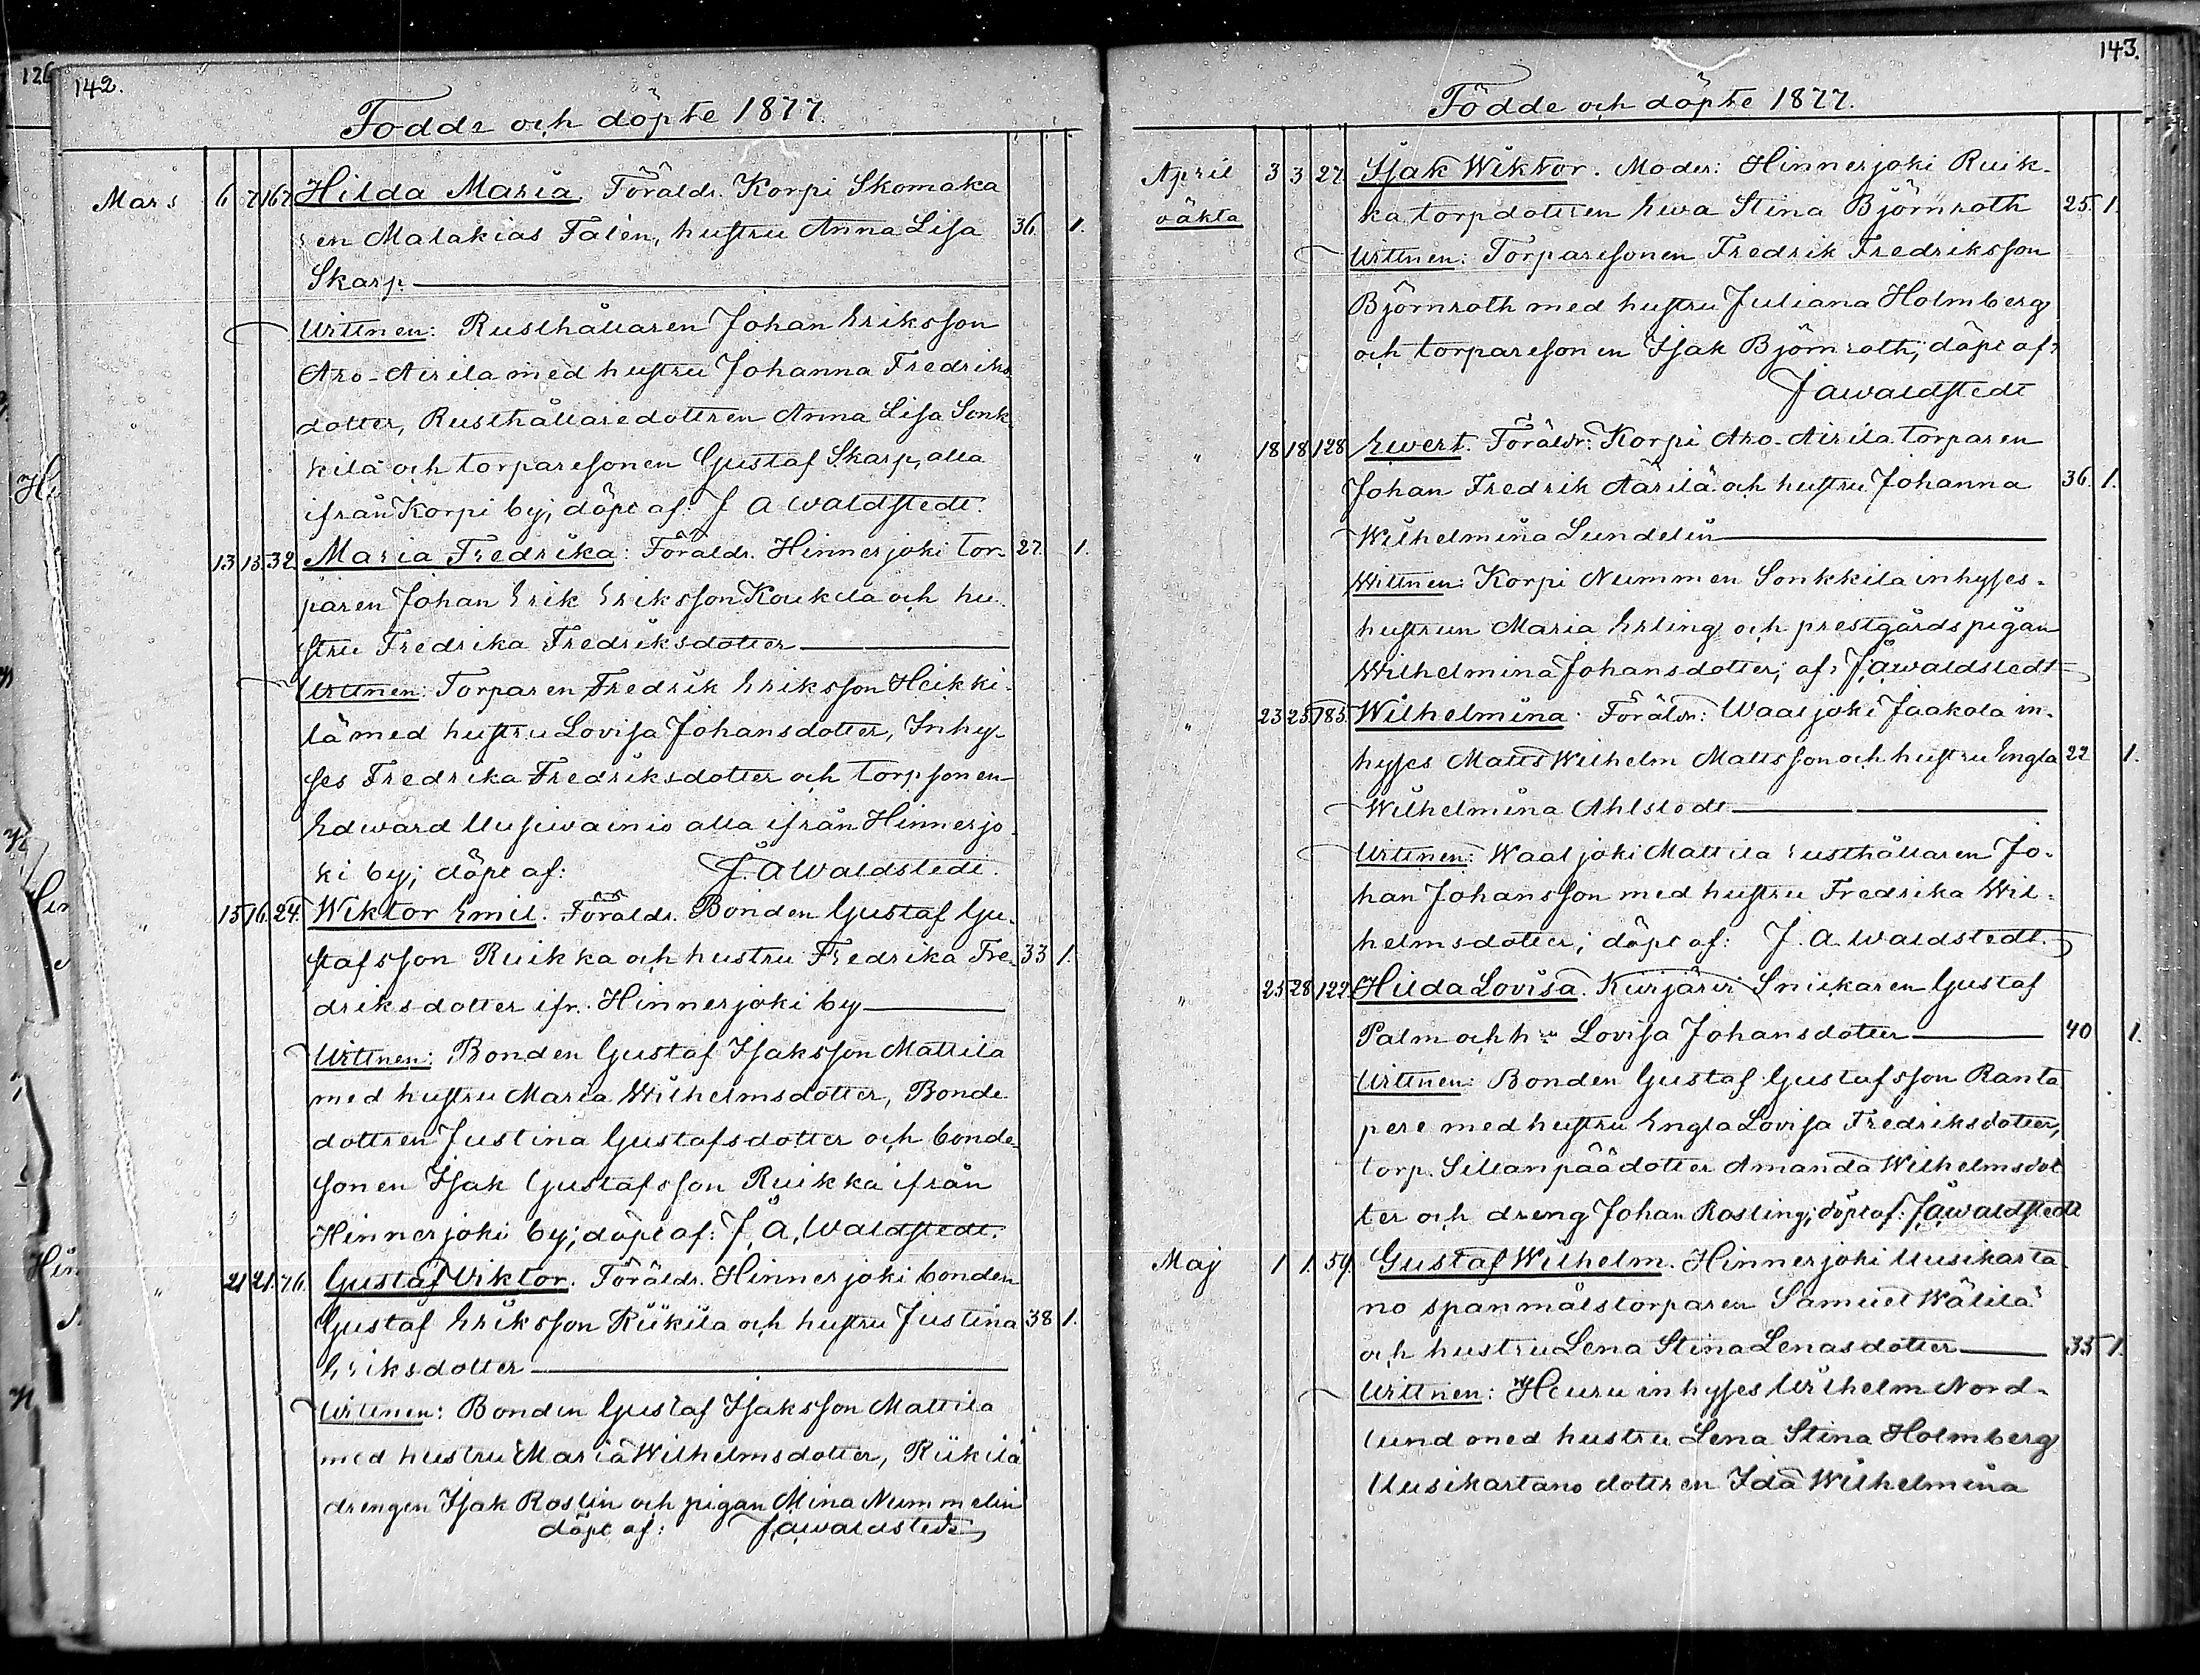 126
142.
Födde och döpte 1877.
Mars 6 7 167 Hilda Maria. Föräldr. Korpi Skomaka
ren Malakias Falén, hustru Anna Lisa 36. 1.
Skarp.
Wittnen: Rusthållaren Johan Eriksson
Aro-Airila med hustru Johanna Fredriks
dotter, Rusthållaredottren Anna Lisa Sonk
kila och torparesonen Gustaf Skarp, alla
ifrån Korpi by; döpt af: J A Waldstedt.
" 13 15. 32. Maria Fredrika: Föräldr. Hinnerjoki tor 27. 1.
paren Johan Erik Eriksson Koukila och hu
stru Fredrika Fredriksdotter
Wittnen: Torparen Fredrik Eriksson Heikki-
lä med hustru Lovisa Johansdotter, Inhy-
ses Fredrika Fredriksdotter och torpsonen
Edward Uusiwainio alla ifrån Hinnerjo
ki by; döpt af: J. A Waldstedt.
" 15 16. 24. Wiktor Emil. Föräldr. Bonden Gustaf Gu-
stafsson Ruikka och hustru Fredrika Fre- 33 1.
driksdotter ifr. Hinnerjoki by
Wittnen: Bonden Gustaf Isaksson Mattila
med hustru Maria Wilhelmsdotter, Bonde
dottren Justina Gustafsdotter och bonde-
sonen Isak Gustafsson Ruikka ifrån
Hinnerjoki by; döpt af: J. A. Waldstedt.
" 21 21. 76. Gustaf Viktor. Föräldr. Hinnerjoki bonden
Gustaf Eriksson Riikilä och hustru Justina 38 1.
Eriksdotter
Wittnen: Bonden Gustaf Isaksson Mattila
med hustru Maria Wilhelmsdotter, Riikilä
drengen Isak Roslin och pigan Mina Nummelin
döpt af: J. A. Waldstedt
143.
Födde och döpte 1877.
April 3 3 27 Isak Wiktor. Moder: Hinnerjoki Ruik-
oäkta ka torpdottren Ewa Stina Björnroth 25. 1.
Wittnen: Torparesonen Fredrik Fredriksson
Björnroth med hustru Juliana Holmberg
och torparesonen Isak Björnroth; döpt af:
J A Waldstedt
" 18 18 128 Ewert. Föräldr: Korpi Aro-Airila torparen
Johan Fredrik Äärilä och hustru Johanna 36. 1.
Wilhelmina Lundelin
Wittnen: Korpi Nummen Sonkkila inhyses-
hustrun Maria Erling och prestgårdspigan
Wilhelmina Johansdotter; af: J. A. Waldstedt
" 23 25 185. Wilhelmina. Föräldr: Waaljoki Jaakola in-
hyses Matts Wilhelm Mattsson och hustru Engla 22 1.
Wilhelmina Ahlstedt
Wittnen: Waaljoki Mattila rusthållaren Jo-
han Johansson med hustru Fredrika Wil-
helmsdotter; döpt af: J. A. Waldstedt.
" 25 28 122. Hilda Lovisa. Kurjärvi Snickaren Gustaf
Palm och h:u Lovisa Johansdotter 40 1.
Wittnen: Bonden Gustaf Gustafsson Ranta
pere med hustru Engla Lovisa Fredriksdotter,
torp. Sillanpäädotter Amanda Wilhelmsdot
ter och dreng Johan Rosling; döpt af: J. A. Waldstedt
Maj 1 1. 59. Gustaf Wilhelm. Hinnerjoki Uusikarta
no spanmålstorparen Samuel Wälilä
och hustru Lena Stina Lenasdotter 35 1.
Wittnen: Heuru inhyses Wilhelm Nord-
lund med hustru Lena Stina Holmberg
Uusikartano dottren Ida Wilhelmina